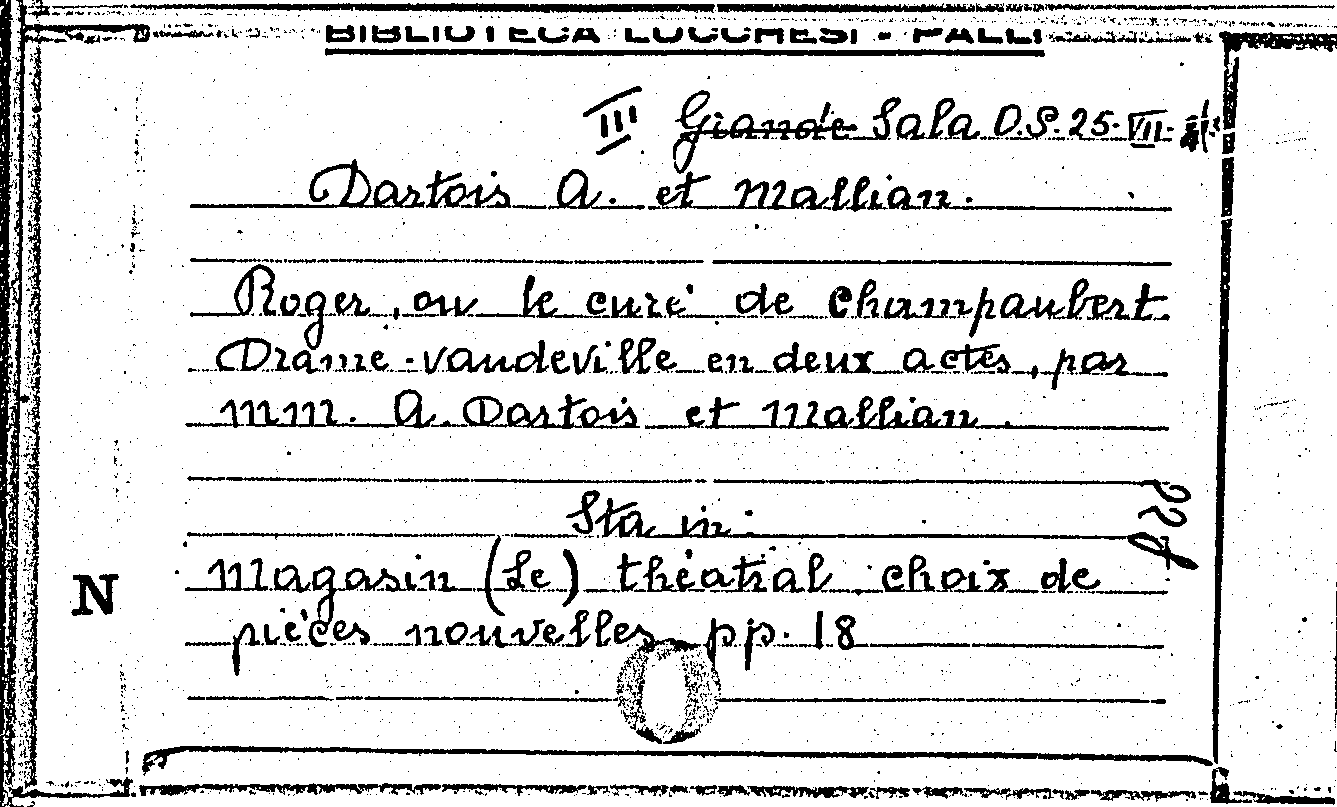 BIBLIOTECA LUCCHESI - PALLI
III Grande Sala D.S. 25. VII.
Dartois A. et Mallian.
Roger, ou le curé de Champaubert.
Drame-vaudeville en deux actes, par
MM. A. Dartois et Mallian.
Sta in:
Magasin (Le) théatral. choix de
pièces nouvelles pp. 18
N